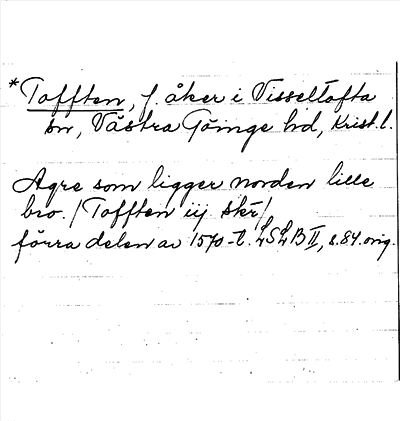 *Tofften, f. åker i Visseltofta
sn, Västra Göinge hd, Krist. l.
Agre som ligger norden lille
bro. / Tofften iij skr /
förra delen av 1570-t. LSLB II, s. 84. orig.